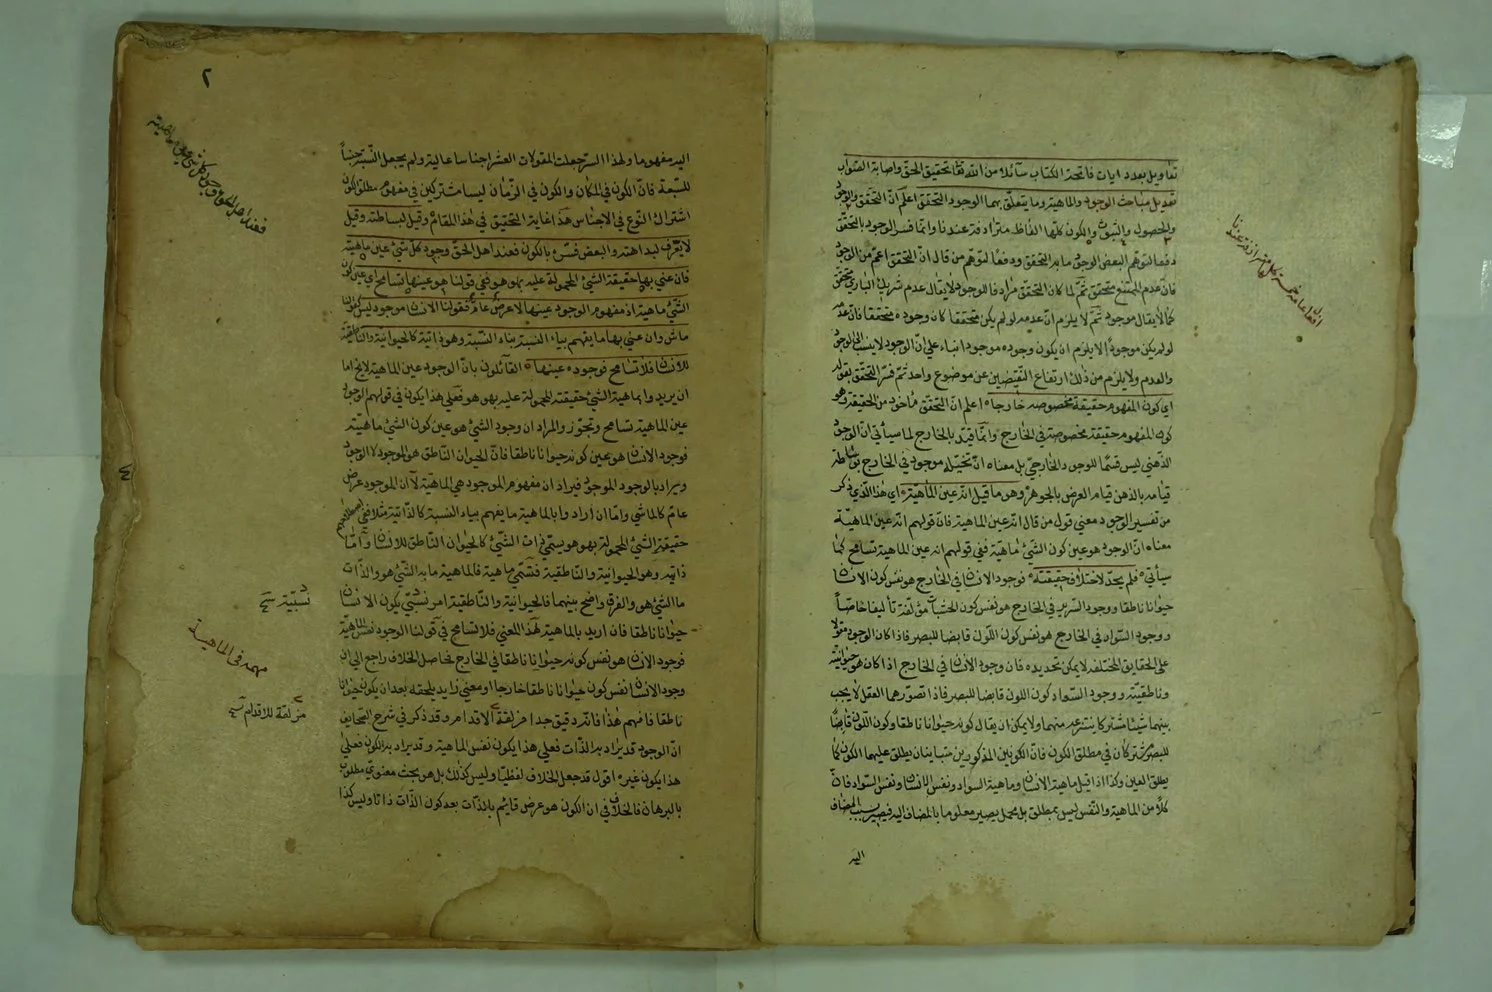 تعاويل بعدد ايات فاتحة الكتاب سآئلا من الله تعا تحقيق الحق واصابة الصواب
تعديل مباحث الوجود والماهية وما يتعلق بهما الوجود التحقق اعلم ان التحقق والوجود
والحصول والثبوت والكون كلها الفاظ مترادفة عندنا وانما فسر الوجود بالتحقق
دفعا لتوهم البعض الوجود ما به التحقق ودفعا لتوهم من قال ان التحقق اعم من الوجود
فان عدم الممتنع متحقق ثم لما كان التحقق مرادفا للوجود لا يقال عدم شريك الباري متحقق
كما لا يقال موجود ثم لا يلزم ان عدمه لو لم يكن متحققا كان وجوده متحققا فان عدمه
لو لم يكن موجودا لا يلزم ان يكون وجوده موجودا بناء على ان الوجود لا ينسب الى الوجود
والعدم ولا يلزم من ذلك ارتفاع النقيضين عن موضوع واحد ثم فسر التحقق بقوله
اي كون المفهوم حقيقة مخصوصة خارجا اعلم ان التحقق مأخوذ من الحقيقة وهو
كون المفهوم حقيقة مخصوصة في الخارج وانما قيد بالخارج لما سيأتي ان الوجود
الذهني ليس قسما للوجود الخارجي بل معناه ان تخيله موجود في الخارج بواسطة
قيامه بالذهن قيام العرض بالجوهر وهو ما قيل انه عين الماهية اي هذا الذي ذكر
من تفسير الوجود معنى قول من قال انه عين الماهية فان قولهم انه عين الماهية
معناه ان الوجود هو عين كون الشئ ماهية ففي قولهم انه عين الماهية تسامح كما
سيأتي فلم يحد لاختلاف حقيقته فوجود الانسان في الخارج هو نفس كون الانسان
حيوانا ناطقا ووجود السرير في الخارج هو نفس كون الخشبات مؤلفة تأليفا خاصا
ووجود السواد في الخارج هو نفس كون اللون قابضا للبصر فاذا كان الوجود مقولا
على الحقايق المختلفة لا يمكن تحديده فان وجود الانسان في الخارج اذا كان هو حيوانيته
وناطقيته ووجود السواد كون اللون قابضا للبصر فاذا تصورهما العقل لا يجب
بينهما شيئا مشتركا ينتزعه منهما ولا يمكن ان يقال كونه حيوانا ناطقا وكون اللون قابضا
للبصر مشتركان في مطلق الكون فان الكونين المذكورين متباينان يطلق عليهما الكون كما
يطلق العين وكذا اذا قيل ماهية الانسان وماهية السواد ونفس الانسان ونفس السواد فان
كلا من الماهية والنفس ليس بمطلق بل مجمل يصير معلوما بالمضاف اليه فيصير بسبب المضاف
اليه
٢
اليه مفهوم ما ولهذا السر جعلت المقولات العشر اجناسا عالية ولم يجعل النسبة جنسا
للسبعة فان الكون في المكان والكون في الزمان ليسا مشتركين في مفهوم مطلق الكون
اشتراك النوع في الاجناس هذا غاية التحقيق في هذا المقام وقيل لبساطته وقيل
لا يعرف لبداهته والبعض فسره بالكون فعند اهل الحق وجود كل شئ عين ماهيته
فان عنى بها حقيقة الشئ المحمولة عليه بهو هو ففي قولنا هو عينها تسامح اي عين كون
الشئ ماهية اذ مفهوم الوجود عينها لا عرض عام فقولنا الانسان موجود ليس كقولنا
ماش وان عنى بها ما يفهم بياء النسبة بناء النسبة وهو ذاتية كالحيوانية والناطقية
للانسان فلا تسامح فوجوده عينها القائلون بان الوجود عين الماهية لا يخ اما
ان يريدوا بماهية الشئ حقيقته المحمولة عليه بهو هو فعلى هذا يكون في قولهم الوجود
عين الماهية تسامح وتجوز والمراد ان وجود الشئ هو عين كون الشئ ماهيته
فوجود الانسان هو عين كونه حيوانا ناطقا فان الحيوان الناطق هو الموجود لا الوجود
ويراد بالوجود الموجود فيراد ان مفهوم الموجود هي الماهية لا ان الموجود عرض
عام كالماشي واما ان ارادوا بالماهية ما يفهم بياء النسبة كالذاتية مثلا ففي اصطلاحهم
حقيقة الشئ المحمولة بهو هو يسمى ذات الشئ كالحيوان الناطق للانسان واما
ذاتيه وهو الحيوانية والناطقية فتسمى ماهية فالماهية ما به الشئ هو والذات
ما الشئ هو والفرق واضح بينهما فالحيوانية والناطقية امر نسبي يكون الانسان
حيوانا ناطقا فان اريد بالماهية هذا المعنى فلا تسامح في قولنا الوجود نفس الماهية
فوجود الانسان هو نفس كونه حيوانا ناطقا في الخارج فحاصل الخلاف راجع الى ان
وجود الانسان نفس كون حيوانا ناطقا خارجا او معنى زايد يلحقه بعد ان يكون حيوانا
ناطقا فافهم هذا فانه دقيق جدا مزلقة الاقدام وقد ذكر في شرح الصحايف
ان الوجود قد يراد به الذات فعلى هذا يكون نفس الماهية وقد يراد به الكون فعلى
هذا يكون غيره اقول قد جعل الخلاف لفظيا وليس كذلك بل هو بحث معنوي مطلوب
بالبرهان فالخلاف في ان الكون هو عرض قايم بالذات بعد كون الذات ذاتا وليس كذا
نسبية
مهمه في الماهية
مزلقة للاقدام